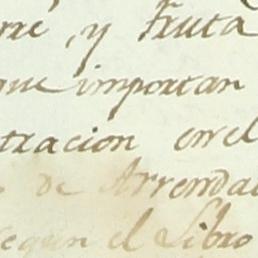 , y Fruta
que importan
tracion en el
de Arrenda
segun el Libro